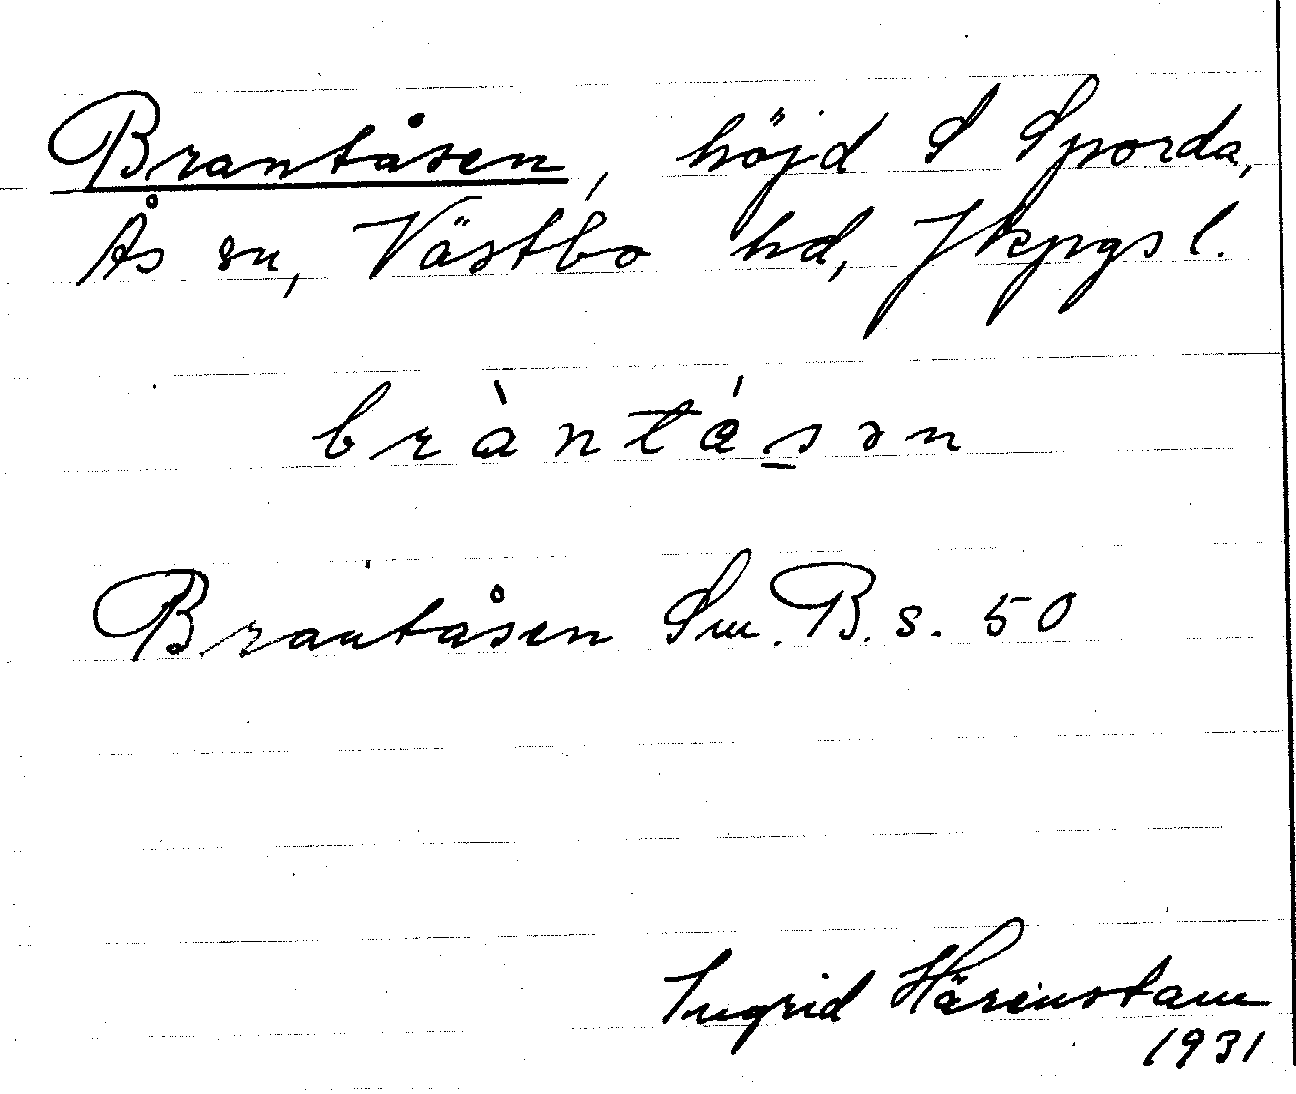 Brantåsen, höjd S Sporda,
Ås sn, Västbo hd, Jkpgs l.
bràntásən
Brantåsen Sm. B. s. 50
Ingrid Härenstam
1931